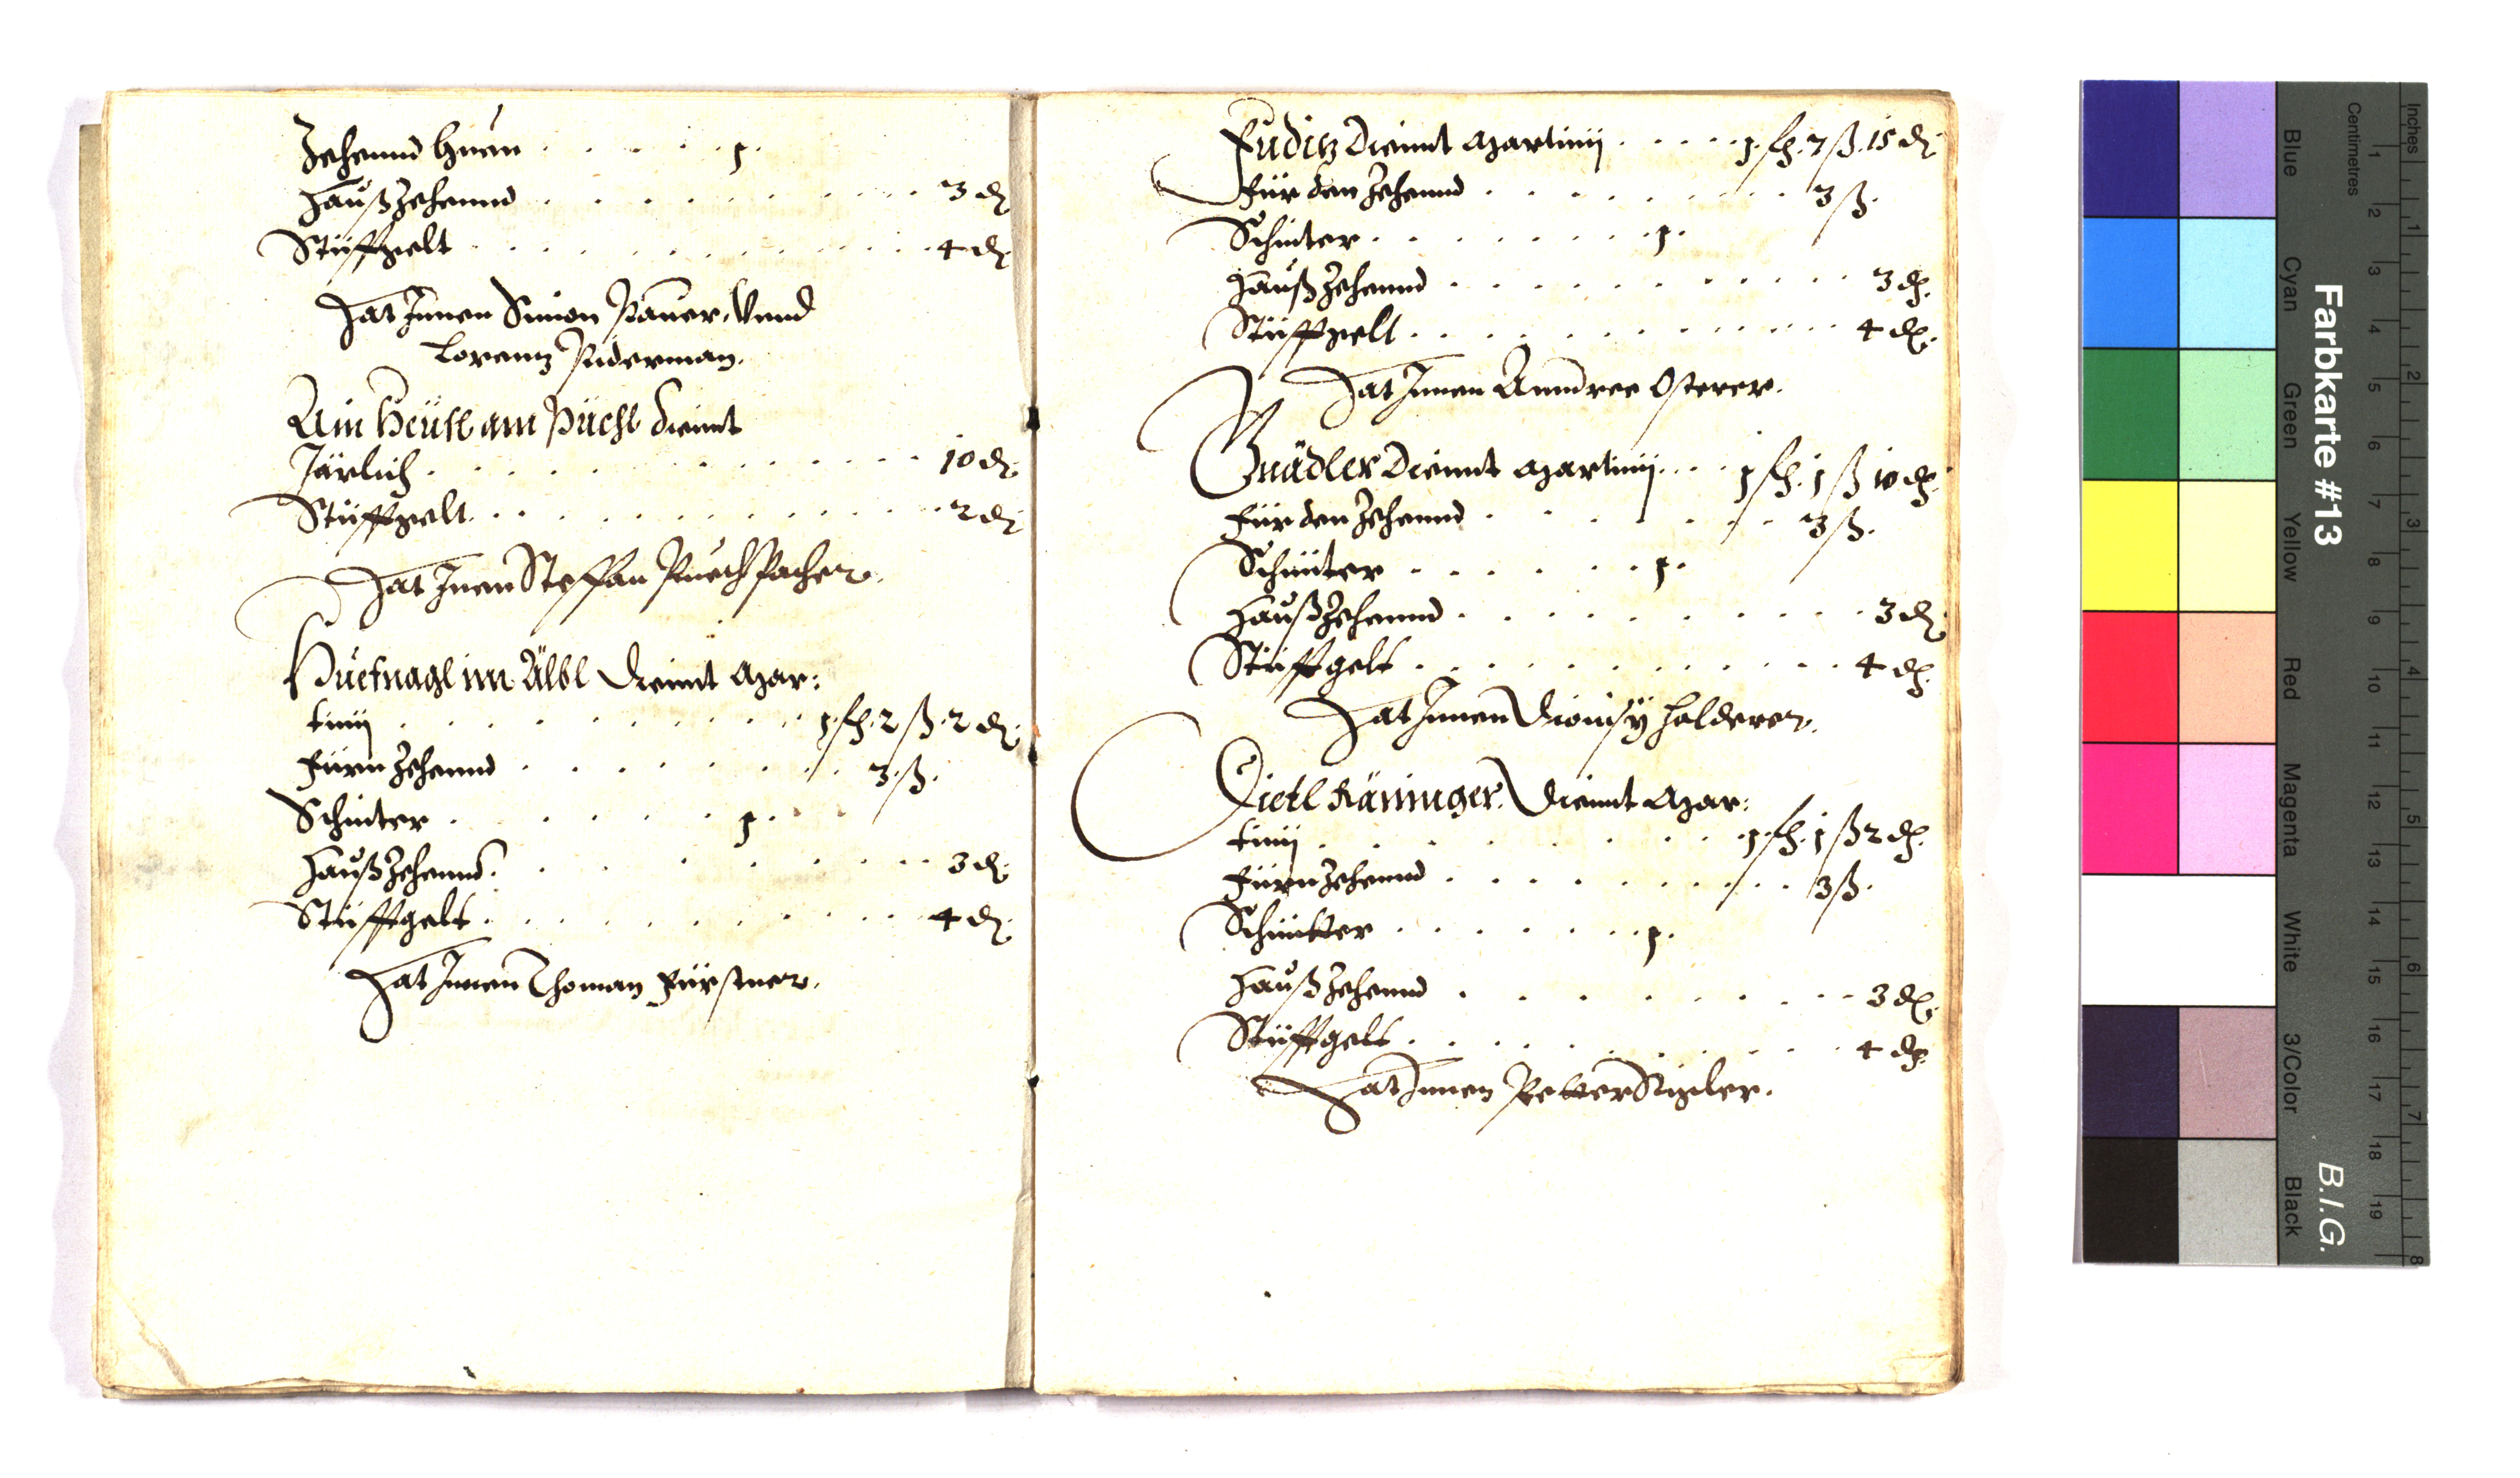 Zehennd Huen . . . . . 1.
Haußzehennd . . . . . . . . . . 3 d.
Stüfftgelt . . . . . . . . . . . 4 d.
Hat Innen Simon Paner. Vnnd
Lorenntz Puderman.
Ain Heüsl am Püchl diennt
Järlich . . . . . . . . . . . . 10 d.
Stüfftgelt . . . . . . . . . . . 2 d.
Hat Innen Steffan Puechpacher.
Huefnagl im Älbl Diennt Mar:
tinij . . . . . . . . 1 fl. 2 ß. 2 d.
Fürn Zehennd . . . . . . . . 3 ß.
Schinter . . . . . . 1.
Haußzehennd . . . . . . . . . 3 d.
Stüfftgelt . . . . . . . . . . 4 d.
Hat Innen Thoman Fürstner.
Fuditz Diennt Martinij . . . . . 1 fl. 7 ß. 15 d.
Für den Zehennd . . . . . . . . 3 ß.
Schinter . . . . . . . . 1.
Haußzehennd . . . . . . . . . . 3 d.
Stüfftgelt . . . . . . . . . . . 4 d.
Hat Innen Anndree Osterer.
Gnädler Diennt Martinij . . . 1 fl. 1 ß 10 d.
Für den Zehennd . . . . . . . 3 ß.
Schinter . . . . . . 1.
Haußzehennd . . . . . . . . . 3 d.
Stüfftgelt . . . . . . . . . . 4 d.
Hat Innen Dionisÿ Halderer.
Dietl Räninger. Diennt Mar:
tinij . . . . . . . . 1 fl. 1 ß 2 d.
Fürn Zehennd . . . . . . . . . 3 ß.
Schintter . . . . . . . 1.
Haußzehennd . . . . . . . . . 3 d.
Stüfftgelt . . . . . . . . . . 4 d.
Hat Innen Petter
Farbkarte #13
B.I.G.
Inches
1 2 3 4 5 6 7 8
Centimetres
1 2 3 4 5 6 7 8 9 10 11 12 13 14 15 16 17 18 19
Blue Cyan Green Yellow Red Magenta White 3/Color Black